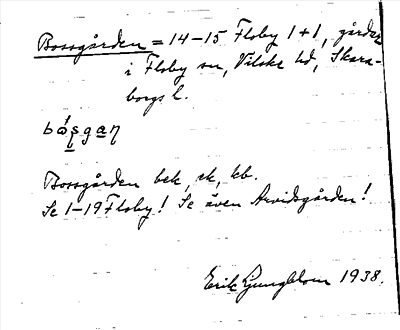 Bossgården = 14-15 Floby 1+1, gårdar
i Floby sn, Vilske hd, Skara-
borgs l.
bǻsgan
Bossgården bek, sk, kb.
Se 1-19 Floby! Se även Arvidsgården!
Erik Ljungblom 1938.